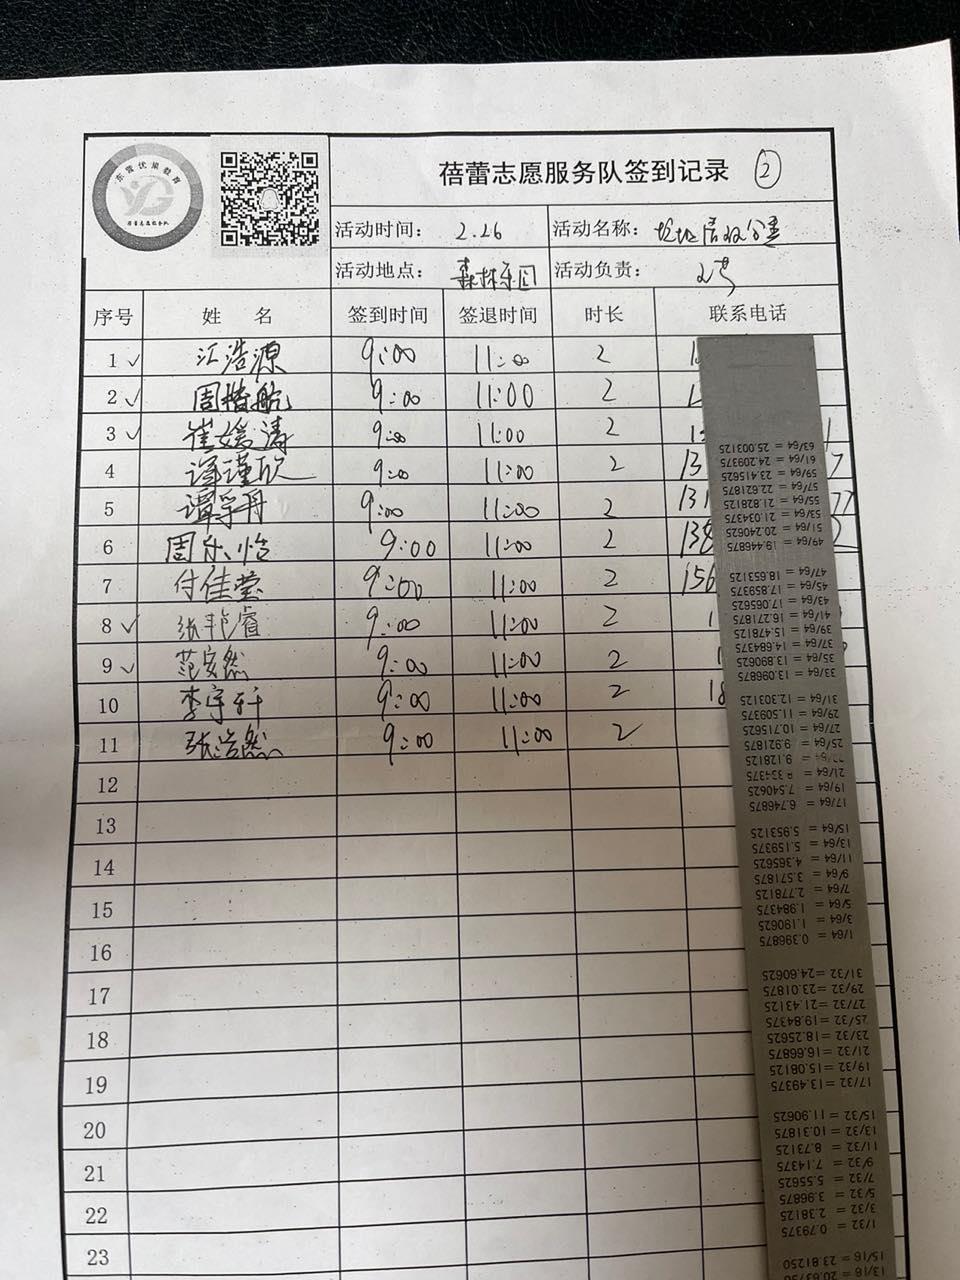 东营优巢教育
YG
蓓蕾志愿服务队签到记录 ②
活动时间： 2.26 活动名称：
活动地点： 森林乐园 活动负责：
序号 姓 名 签到时间 签退时间 时长 联系电话
1 ✓ 江浩源 9:00 11:00 2
2 ✓ 周楷航 9:00 11:00 2
3 ✓ 崔媛涛 9:00 11:00 2
4 瑾欣 9:00 11:00 2 13 7
5 谭 丹 9:00 11:00 2 131 77
6 周乐怡 9:00 11:00 2 138 2
7 付佳莹 9:00 11:00 2 156
8 ✓ 张 睿 9:00 11:00 2 1
9 ✓ 范安然 9:00 11:00 2 1
10 李宇轩 9:00 11:00 2 18
11 张浩然 9:00 11:00 2
12
13
14
15
16
17
18
19
20
21
22
23
63/64 = 25.003125
61/64 = 24.209375
59/64 = 23.415625
57/64 = 22.621875
55/64 = 21.828125
53/64 = 21.034375
51/64 = 20.240625
49/64 = 19.446875
47/64 = 18.653125
45/64 = 17.859375
43/64 = 17.065625
41/64 = 16.271875
39/64 = 15.478125
37/64 = 14.684375
35/64 = 13.890625
33/64 = 13.096875
31/64 = 12.303125
29/64 = 11.509375
27/64 = 10.715625
25/64 = 9.921875
9.128125
21/64 = 8.334375
19/64 = 7.540625
17/64 = 6.746875
15/64 = 5.953125
13/64 = 5.159375
11/64 = 4.365625
9/64 = 3.571875
7/64 = 2.778125
5/64 = 1.984375
3/64 = 1.190625
1/64 = 0.396875
31/32 =24.60625
29/32 =23.01875
27/32 =21.43125
25/32 =19.84375
23/32 =18.25625
21/32 =16.66875
19/32 =15.08125
17/32 =13.49375
15/32 = 11.90625
13/32 = 10.31875
11/32 = 8.73125
9/32 = 7.14375
7/32 = 5.55625
5/32 = 3.96875
3/32 = 2.38125
1/32 = 0.79375
15/16 = 23.81250
13/16 = 20.63750